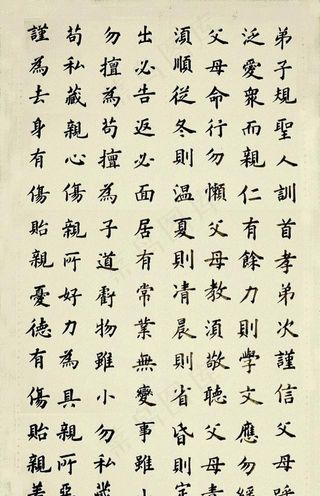 弟子規聖人訓首孝弟次謹信父母呼
泛愛衆而親仁有餘力則學文應勿緩
父母命行勿懶父母教須敬聽父母責
須順從冬則温夏則凊晨則省昏則定
出必告返必面居有常業無變事雖
勿擅為苟擅為子道虧物雖小勿私
苟私藏親心傷親所好力為具親所惡
謹為去身有傷貽親憂德有傷貽親羞